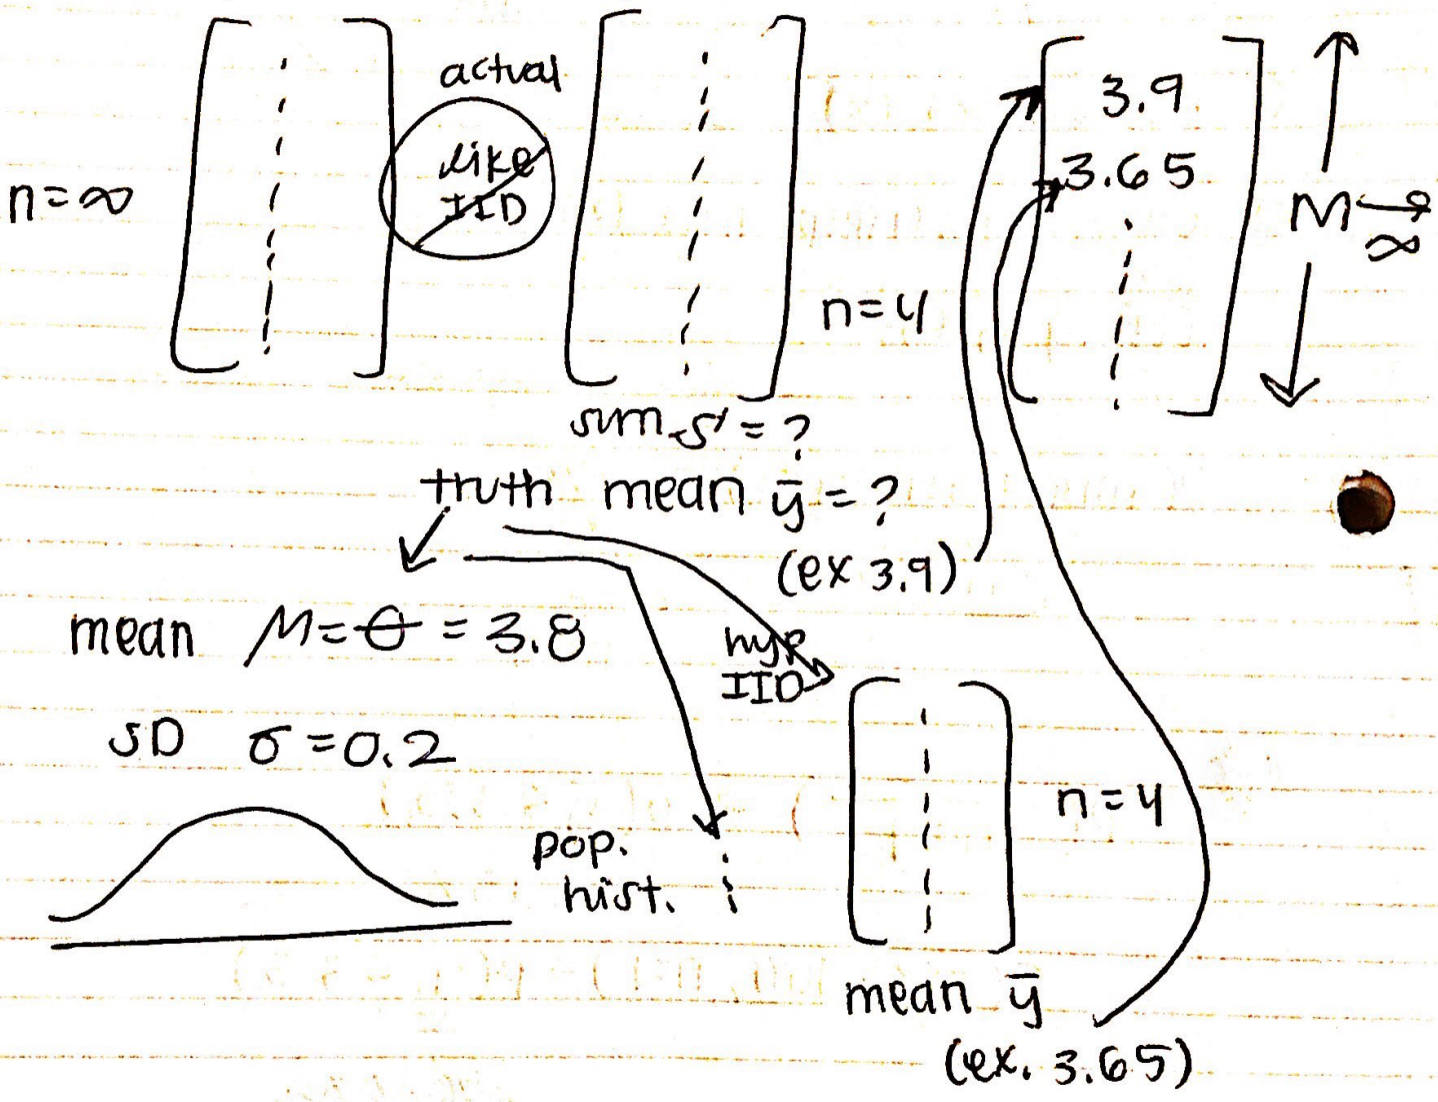 actual
like
IID
n=∞
3.9
3.65
M→
∞
n=4
sum s=?
truth mean ȳ=?
(ex 3.9)
mean μ=θ=3.8
hyp
IID
SD σ=0.2
n=4
pop.
hist.
mean ȳ
(ex. 3.65)